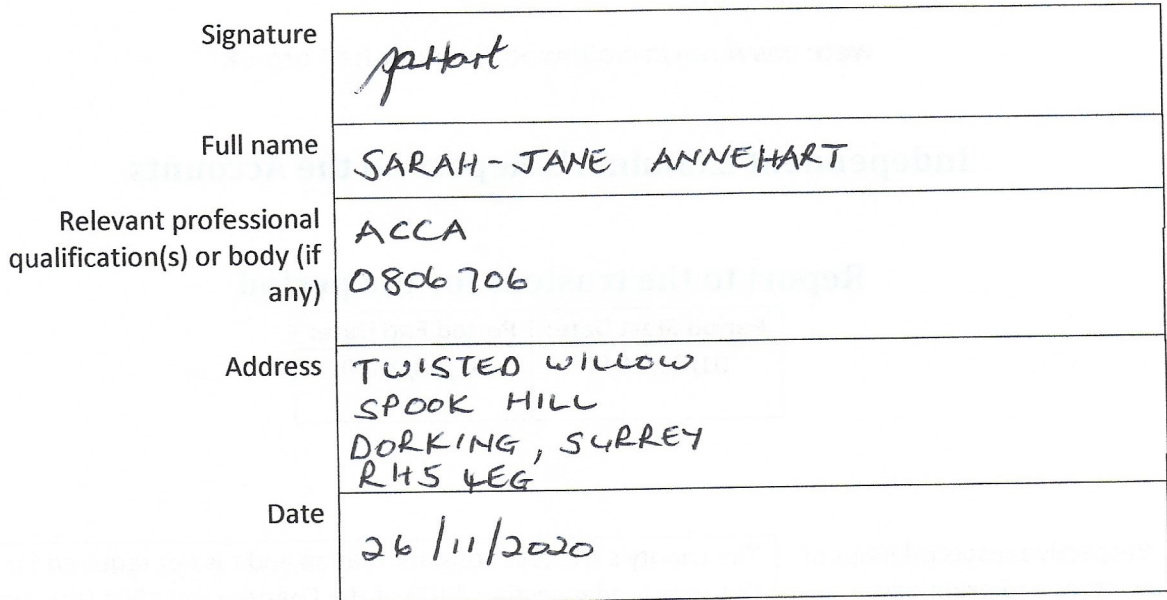 Signature
Full name
SARAH-JANE ANNEHART
Relevant professional
qualification(s) or body (if
any)
ACCA
0806706
Address
TWISTED WILLOW
SPOOK HILL
DORKING, SURREY
RH5 4EG
Date
26/11/2020